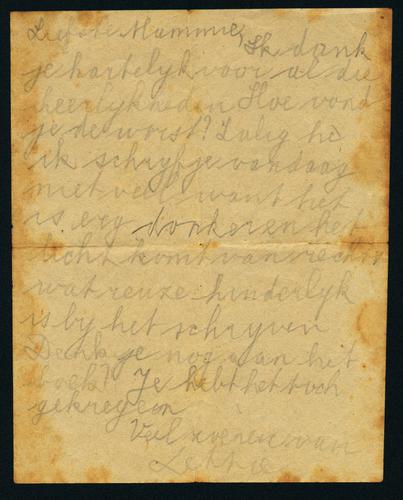 Liefste Mammie, Ik dank
je hartelyk voor al die
heerlykheden Hoe vond
je de worst? Zalig hè
ik schryf je vandaag
niet veel want het
is erg donker en het
licht komt van rechts
wat reuze hinderlyk
is by het schryven
Denk je nog aan het
boek? Je hebt het toch
gekregen
Veel zoenen van